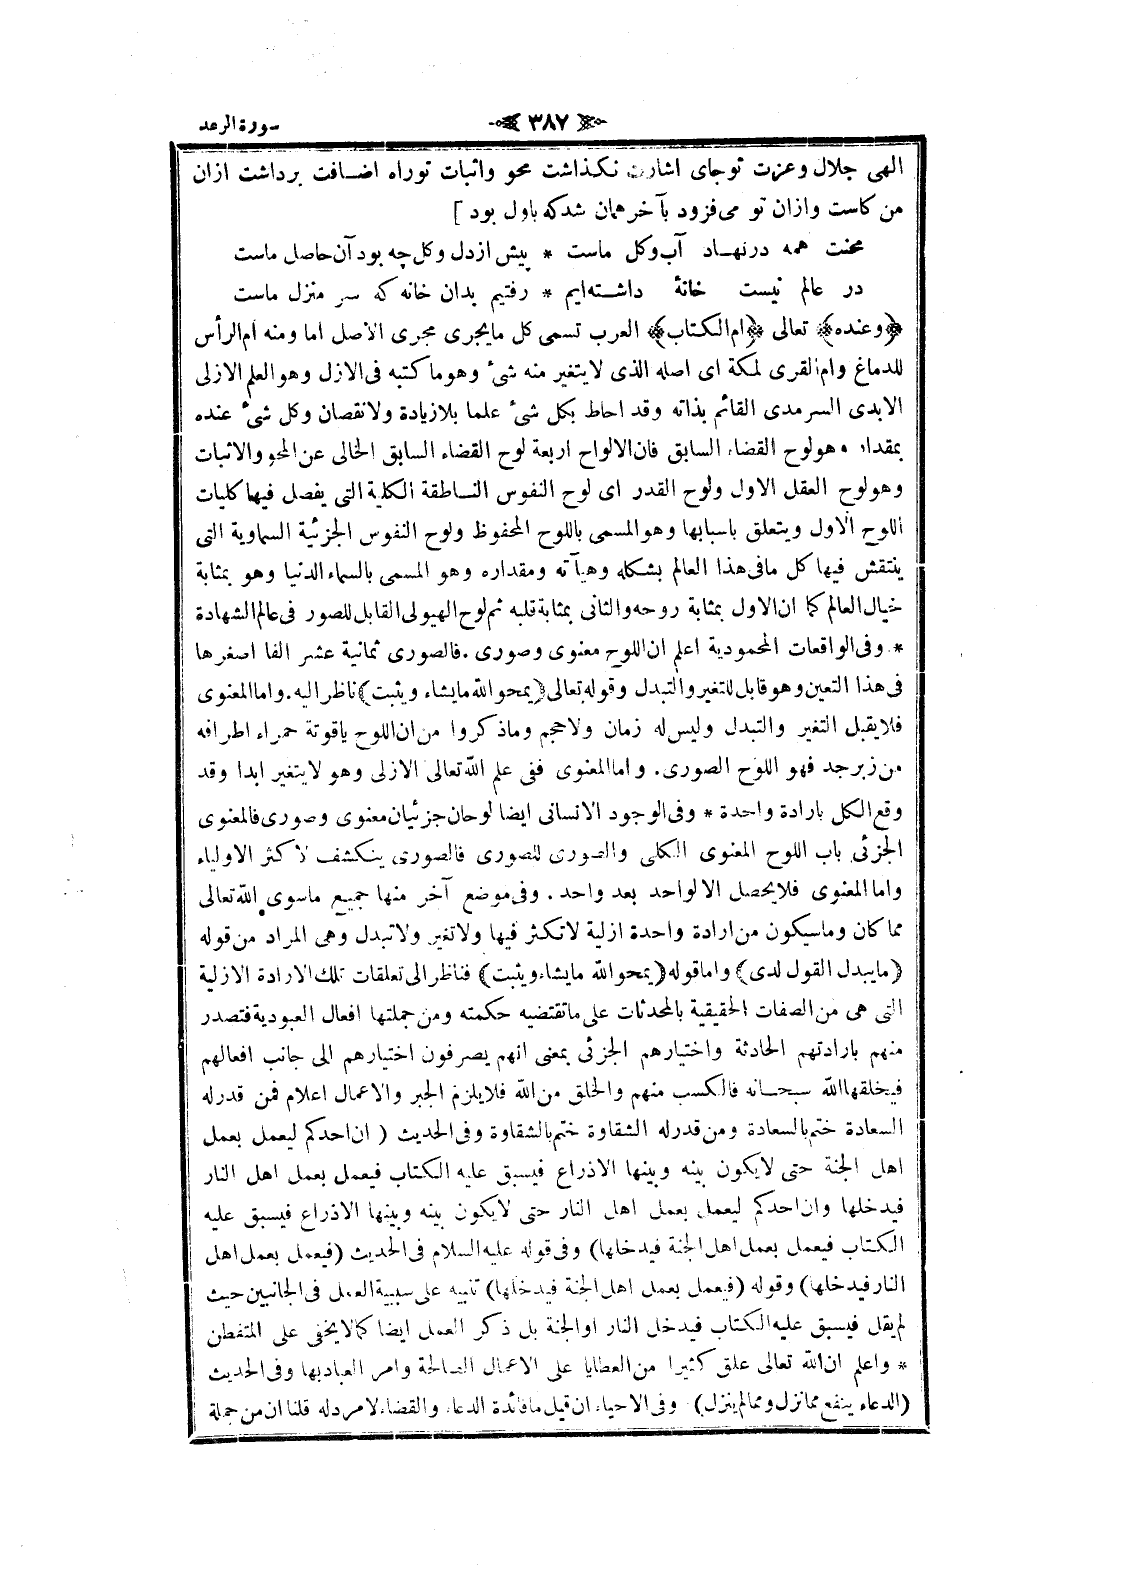 سورة الرعد
﴿ ٣٨٧ ﴾
الهى جلال وعزت توجاى اشارت نكذاشت محو واثبات توراه اضافت برداشت ازان
من كاست وازان تو مى فزود بآخر همان شدكه باول بود ]
محنت همه درنهاد آب وكل ماست * پيش ازدل وكل چه بود آن حاصل ماست
در عالم نيست خانۀ داشته ايم * رفتيم بدان خانه كه سر منزل ماست
﴿وعنده﴾ تعالى ﴿ام الكتاب﴾ العرب تسمى كل مايجرى مجرى الاصل اما ومنه ام الرأس
للدماغ وام القرى لمكة اى اصله الذى لايتغير منه شئ وهو ما كتبه فى الازل وهو العلم الازلى
الابدى السرمدى القائم بذاته وقد احاط بكل شئ علما بلازيادة ولانقصان وكل شئ عنده
بمقدار وهو لوح القضاء السابق فان الالواح اربعة لوح القضاء السابق الخالى عن المحو والاثبات
وهو لوح العقل الاول ولوح القدر اى لوح النفوس الناطقة الكلية التى يفصل فيها كليات
اللوح الاول ويتعلق باسبابها وهو المسمى باللوح المحفوظ ولوح النفوس الجزئية السماوية التى
ينتقش فيها كل مافى هذا العالم بشكله وهيآته ومقداره وهو المسمى بالسماء الدنيا وهو بمثابة
خيال العالم كما ان الاول بمثابة روحه والثانى بمثابة قلبه ثم لوح الهيولى القابل للصور فى عالم الشهادة
* وفى الواقعات المحمودية اعلم ان اللوح معنوى وصورى . فالصورى ثمانية عشر الفا اصغرها
فى هذا التعين وهو قابل للتغير والتبدل وقوله تعالى (يمحو الله مايشاء ويثبت) ناظر اليه . واما المعنوى
فلايقبل التغير والتبدل وليس له زمان ولاحجم وماذكروا من ان اللوح ياقوتة حمراء اطرافه
من زبرجد فهو اللوح الصورى . واما المعنوى ففى علم الله تعالى الازلى وهو لايتغير ابدا وقد
وقع الكل بارادة واحدة * وفى الوجود الانسانى ايضا لوحان جزئيان معنوى وصورى فالمعنوى
الجزئى باب اللوح المعنوى الكلى والصورى للصورى فالصورى ينكشف لاكثر الاولياء
واما المعنوى فلايحصل الا لواحد بعد واحد . وفى موضع آخر منها جميع ماسوى الله تعالى
مما كان وماسيكون من ارادة واحدة ازلية لاتكثر فيها ولاتغير ولاتبدل وهى المراد من قوله
(مايبدل القول لدى) واما قوله (يمحو الله مايشاء ويثبت) فناظر الى تعلقات تلك الارادة الازلية
التى هى من الصفات الحقيقية بالمحدثات على ماتقتضيه حكمته ومن جملتها افعال العبودية فتصدر
منهم بارادتهم الحادثة واختيارهم الجزئى بمعنى انهم يصرفون اختيارهم الى جانب افعالهم
فيخلقها الله سبحانه فالكسب منهم والخلق من الله فلايلزم الجبر والاعمال اعلام فمن قدرله
السعادة ختم بالسعادة ومن قدرله الشقاوة ختم بالشقاوة وفى الحديث ( ان احدكم ليعمل بعمل
اهل الجنة حتى لايكون بينه وبينها الاذراع فيسبق عليه الكتاب فيعمل بعمل اهل النار
فيدخلها وان احدكم ليعمل بعمل اهل النار حتى لايكون بينه وبينها الاذراع فيسبق عليه
الكتاب فيعمل بعمل اهل الجنة فيدخلها) وفى قوله عليه السلام فى الحديث (فيعمل بعمل اهل
النار فيدخلها) وقوله (فيعمل بعمل اهل الجنة فيدخلها) تنبيه على سببية العمل فى الجانبين حيث
لم يقل فيسبق عليه الكتاب فيدخل النار اوالجنة بل ذكر العمل ايضا كما لايخفى على المتفطن
* واعلم ان الله تعالى علق كثيرا من العطايا على الاعمال الصالحة وامر العباد بها وفى الحديث
(الدعاء ينفع مما نزل ومما لم ينزل) وفى الاحياء ان قيل مافائدة الدعاء والقضاء لامرد له قلنا ان من جملة